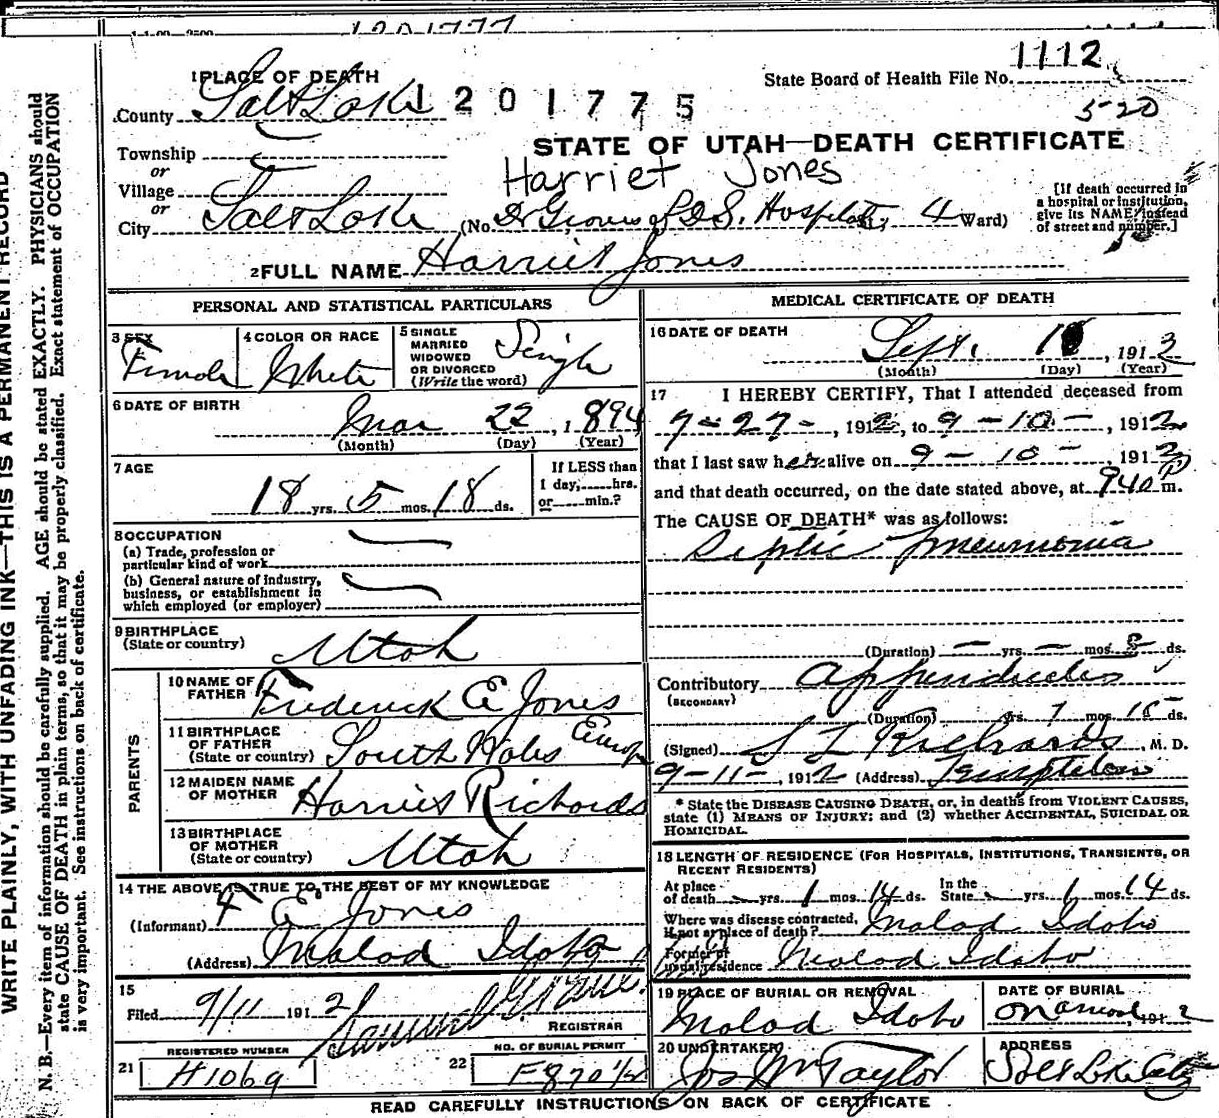 1201777
1112
State Board of Health File No.
5-20
1 PLACE OF DEATH
County Salt Lake 1 2 0 1 7 7 5
STATE OF UTAH—DEATH CERTIFICATE
Township
or
Village
Harriet Jones
or
City Salt Lake (No. Dr Groves L.D.S. Hospital; 4 Ward)
[If death occurred in
a hospital or institution,
give its NAME instead
of street and number.]
2 FULL NAME Harriet Jones
PERSONAL AND STATISTICAL PARTICULARS
3 SEX
Female
4 COLOR OR RACE
White
5 SINGLE
MARRIED
WIDOWED
OR DIVORCED
(Write the word)
Single
6 DATE OF BIRTH
Mar 22, 1894
(Month) (Day) (Year)
7 AGE
18 yrs. 5 mos. 18 ds.
If LESS than
1 day, hrs.
or min.?
8 OCCUPATION
(a) Trade, profession or
particular kind of work
(b) General nature of industry,
business, or establishment in
which employed (or employer)
9 BIRTHPLACE
(State or country) Utah
PARENTS
10 NAME OF
FATHER Frederick E Jones
11 BIRTHPLACE
OF FATHER
(State or country) South Wales Europe
12 MAIDEN NAME
OF MOTHER Harriet Richards
13 BIRTHPLACE
OF MOTHER
(State or country) Utah
14 THE ABOVE IS TRUE TO THE BEST OF MY KNOWLEDGE
(Informant) F E Jones
(Address) Malad Idaho
15
Filed 9/11 191 2
REGISTRAR
REGISTERED NUMBER
21 H1069
NO. OF BURIAL PERMIT
22 F870 1/2
MEDICAL CERTIFICATE OF DEATH
16 DATE OF DEATH
Sept. 10, 1912
(Month) (Day) (Year)
17 I HEREBY CERTIFY, That I attended deceased from
7-27-, 1912, to 9-10-, 1912
that I last saw her alive on 9-10-1912
and that death occurred, on the date stated above, at 940 P m.
The CAUSE OF DEATH* was as follows:
Septic Pneumonia
(Duration) — yrs. — mos. 8 ds.
Contributory Appendicitis
(SECONDARY)
(Duration) yrs. 1 mos. 15 ds.
(Signed) S L Richards, M. D.
9-11-, 1912 (Address) Templeton
* State the DISEASE CAUSING DEATH, or, in deaths from VIOLENT CAUSES,
state (1) MEANS OF INJURY; and (2) whether ACCIDENTAL, SUICIDAL OR
HOMICIDAL.
18 LENGTH OF RESIDENCE (FOR HOSPITALS, INSTITUTIONS, TRANSIENTS, OR
RECENT RESIDENTS)
At place
of death — yrs. 1 mos. 14 ds.
In the
State — yrs. 1 mos. 14 ds.
Where was disease contracted,
if not at place of death? Malad Idaho
Former or
usual residence Malad Idaho
19 PLACE OF BURIAL OR REMOVAL
Malad Idaho
DATE OF BURIAL
191 2
20 UNDERTAKER
Jos Wm Taylor
ADDRESS
Salt Lake City
READ CAREFULLY INSTRUCTIONS ON BACK OF CERTIFICATE
WRITE PLAINLY, WITH UNFADING INK—THIS IS A PERMANENT RECORD
N. B.—Every item of information should be carefully supplied. AGE should be stated EXACTLY. PHYSICIANS should
state CAUSE OF DEATH in plain terms, so that it may be properly classified. Exact statement of OCCUPATION
is very important. See instructions on back of certificate.